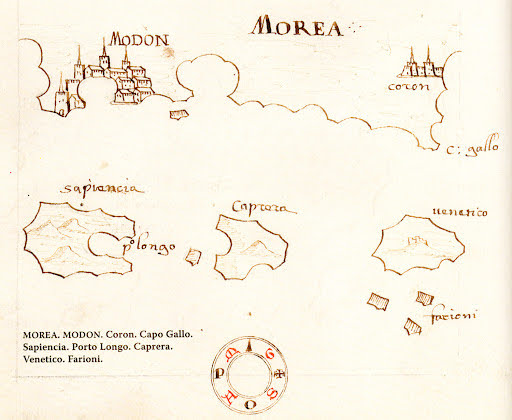 MOREA
MODON
coron
c: gallo
sapiencia
Caprera
venetico
po longo
farioni
MOREA. MODON. Coron. Capo Gallo.
Sapiencia. Porto Longo. Caprera.
Venetico. Farioni.
M G
P
A O S